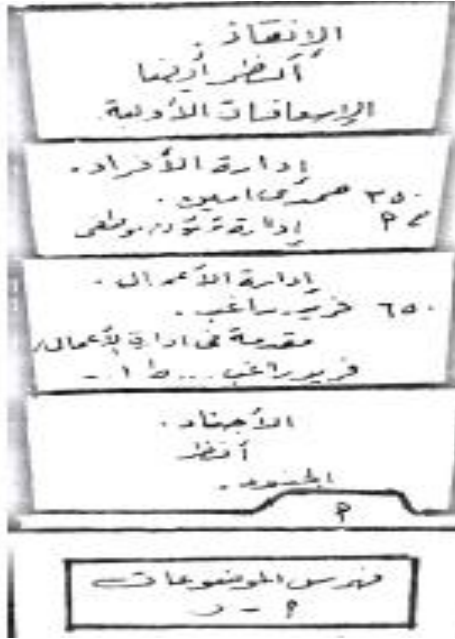 الإنقاذ.
أنظر أيضا
الإسعافات الأولية
إدارة الأفراد.
٣٥٠ حمدى امين.
إدارة شئون موظفى
إدارة الأعمال.
٦٥٠ فريد راغب.
مقدمة فى ادارة الأعمال/
فريد راغب... ط ١.-
الأجناد.
أنظر
الجنود.
فهرس الموضوعات